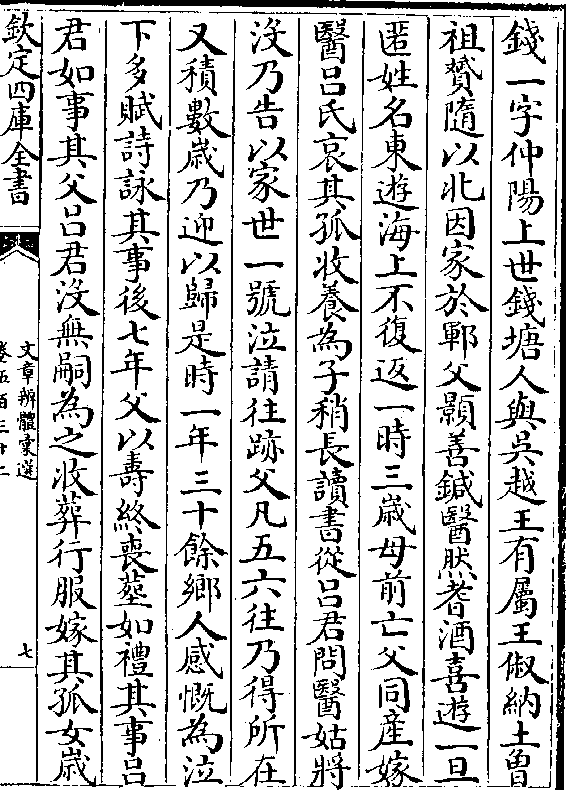 錢一字仲陽上世錢塘人與吳越王有屬王俶納土曽
祖贇隨以北因家於鄆父顥善鍼醫然耆酒喜遊一旦
匿姓名東遊海上不復返一時三歳母前亡父同産嫁
醫吕氏哀其孤收養為子稍長讀書從吕君問醫姑將
沒乃告以家世一號泣請往跡父凡五六往乃得所在
又積數歳乃迎以歸是時一年三十餘鄉人感慨為泣
下多賦詩詠其事後七年父以壽終喪塟如禮其事吕
君如事其父吕君沒無嗣為之收葬行服嫁其孤女歳
欽定四庫全書
文章辨體彚選
卷五百三十二
七